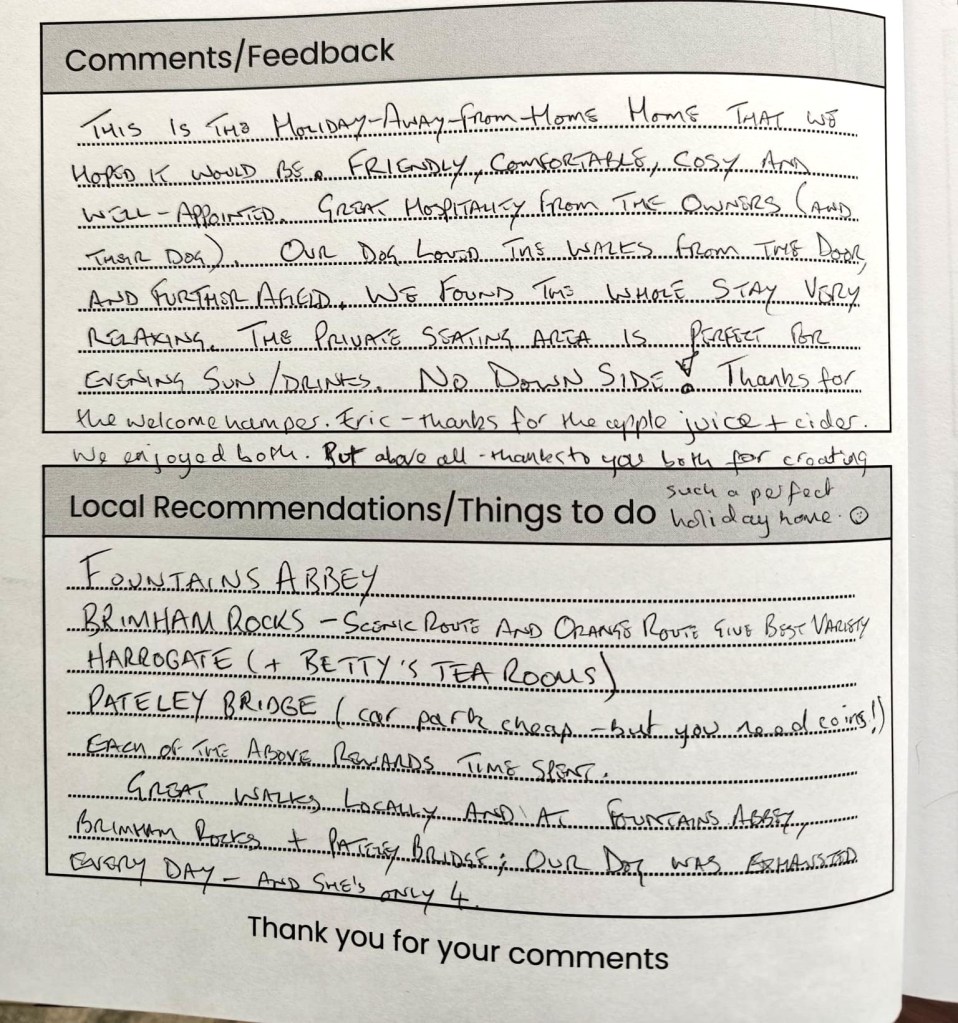 Comments/Feedback
THIS IS THE HOLIDAY-AWAY-FROM-HOME HOME THAT WE
HOPED IT WOULD BE. FRIENDLY, COMFORTABLE, COSY AND
WELL-APPOINTED. GREAT HOSPITALITY FROM THE OWNERS (AND
THEIR DOG). OUR DOG LOVED THE WALKS FROM THE DOOR,
AND FURTHER AFIELD. WE FOUND THE WHOLE STAY VERY
RELAXING. THE PRIVATE SEATING AREA IS PERFECT FOR
EVENING SUN/DRINKS. NO DOWN SIDE! Thanks for
the welcome hamper. Eric - thanks for the apple juice + cider.
We enjoyed both. But above all - thanks to you both for creating
such a perfect
holiday home. ☺
Local Recommendations/Things to do
FOUNTAINS ABBEY
BRIMHAM ROCKS - SCENIC ROUTE AND ORANGE ROUTE GIVE BEST VARIETY
HARROGATE (+ BETTY'S TEA ROOMS)
PATELEY BRIDGE (car park cheap - but you need coins!)
EACH OF THE ABOVE REWARDS TIME SPENT.
GREAT WALKS LOCALLY AND AT FOUNTAINS ABBEY,
BRIMHAM ROCKS + PATELEY BRIDGE; OUR DOG WAS EXHAUSTED
EVERY DAY - AND SHE'S ONLY 4.
Thank you for your comments